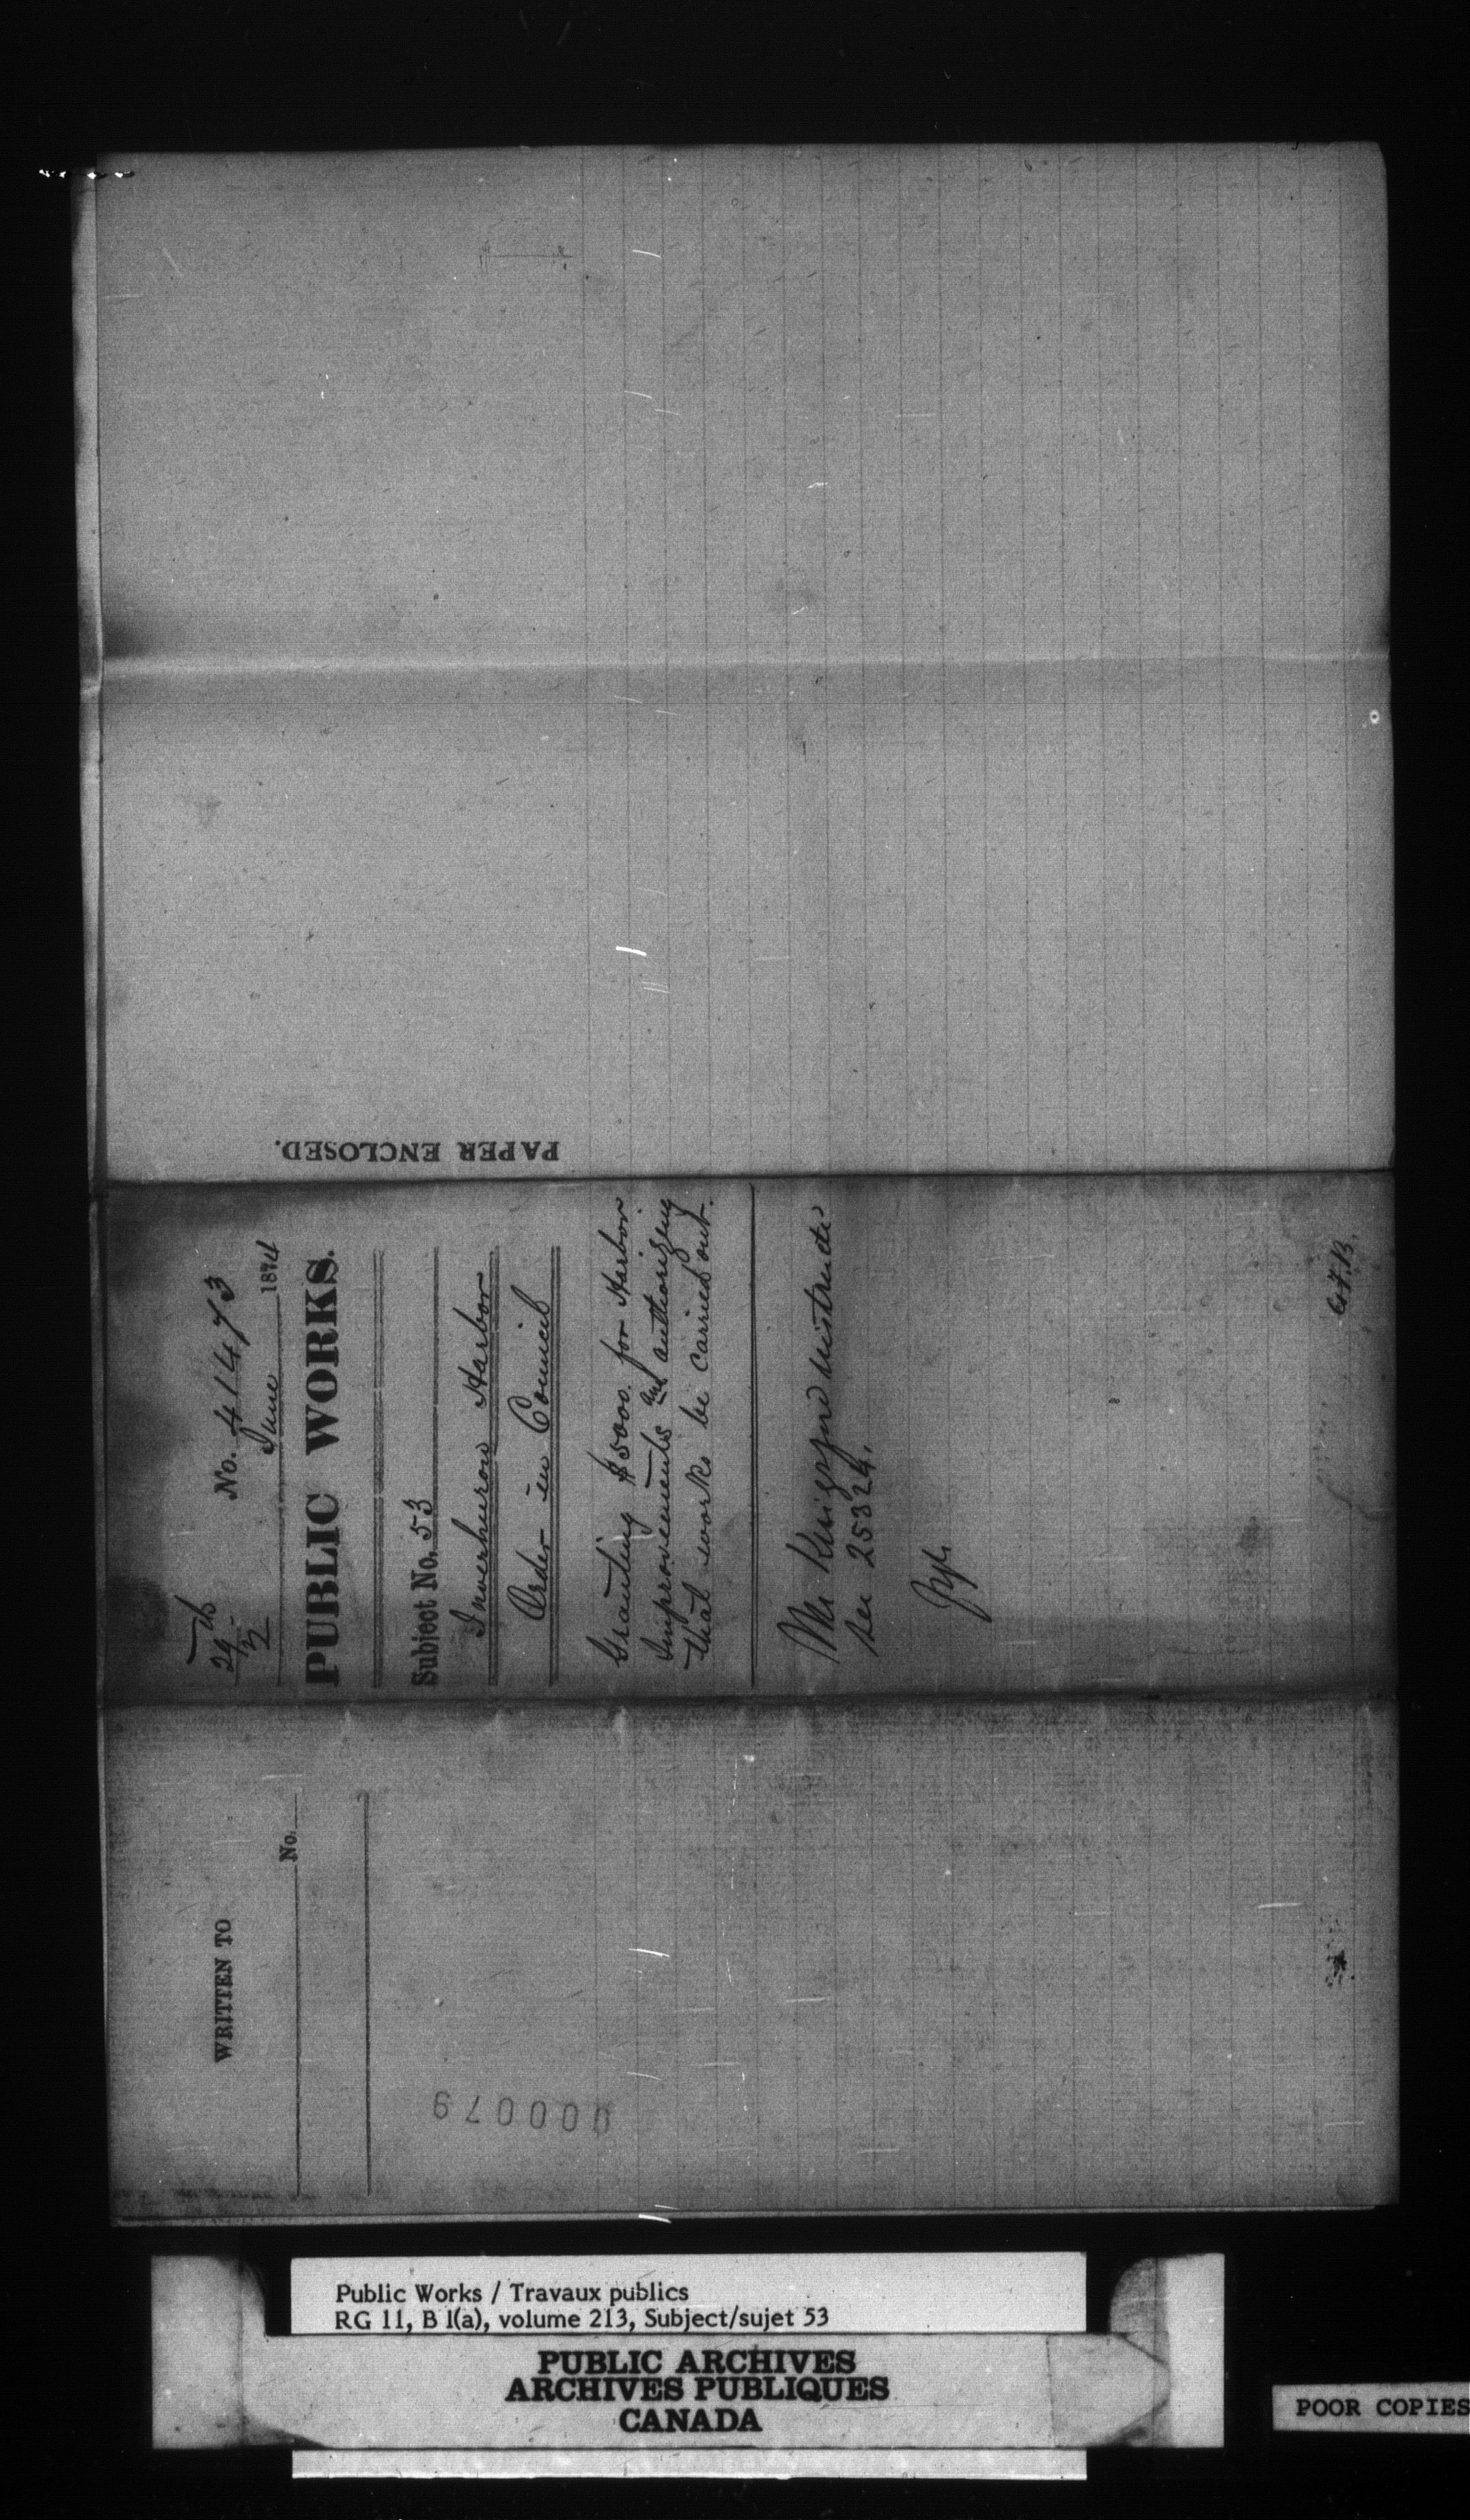 PAPER ENCLOSED.
29th No. 41473
June 1874
PUBLIC WORKS.
Subject No. 53
Inverhuron Harbor
Order in Council
Granting $5000. for Harbor
Improvements and authorizing
that works be carried out.
Mr Kingsford
See 25324.
G.F.B.
WRITTEN TO
No.
000079
Public Works / Travaux publics
RG 11, B 1(a), volume 213, Subject/sujet 53
PUBLIC ARCHIVES
ARCHIVES PUBLIQUES
CANADA
POOR COPIES